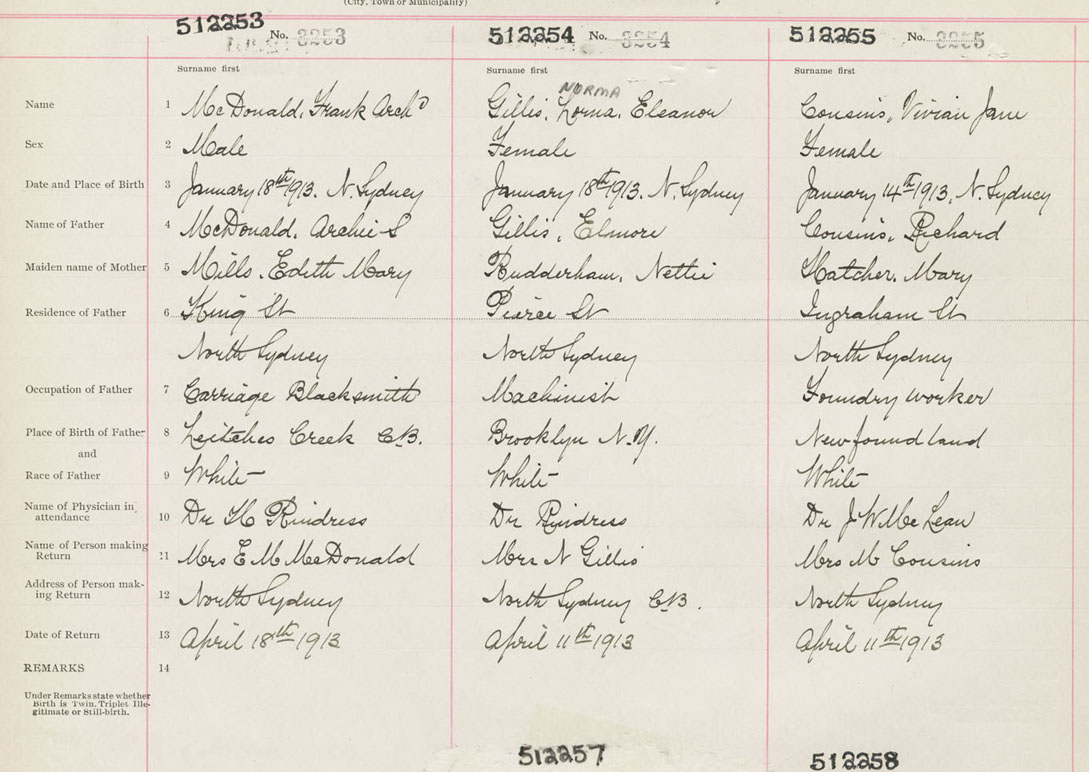 (City, Town or Municipality)
512253 No. 3253 512254 No. 3254 512255 No. 3255
Surname first Surname first Surname first
NORMA
Name 1 McDonald, Frank Archd Gillis, Lorna, Eleanor Cousins, Vivian Jane
Sex 2 Male Female Female
Date and Place of Birth 3 January 18th 1913. N. Sydney January 18th 1913. N. Sydney January 14th 1913, N. Sydney
Name of Father 4 McDonald, Archie S Gillis, Elmore Cousins, Richard
Maiden name of Mother 5 Mills, Edith Mary Rudderham, Nettie Hatcher, Mary
Residence of Father 6 King St Pierce St Ingraham St
North Sydney North Sydney North Sydney
Occupation of Father 7 Carriage Blacksmith Machinist Foundry worker
Place of Birth of Father 8 Leitches Creek C.B. Brooklyn N.Y. Newfoundland
and
Race of Father 9 White White White
Name of Physician in attendance 10 Dr H Rindress Dr Rindress Dr J W McLean
Name of Person making Return 11 Mrs E M McDonald Mrs N Gillis Mrs M Cousins
Address of Person mak-
ing Return 12 North Sydney North Sydney C.B. North Sydney
Date of Return 13 April 18th 1913 April 11th 1913 April 11th 1913
REMARKS 14
Under Remarks state whether
Birth is Twin, Triplet Ille-
gitimate or Still-birth.
512257 512258